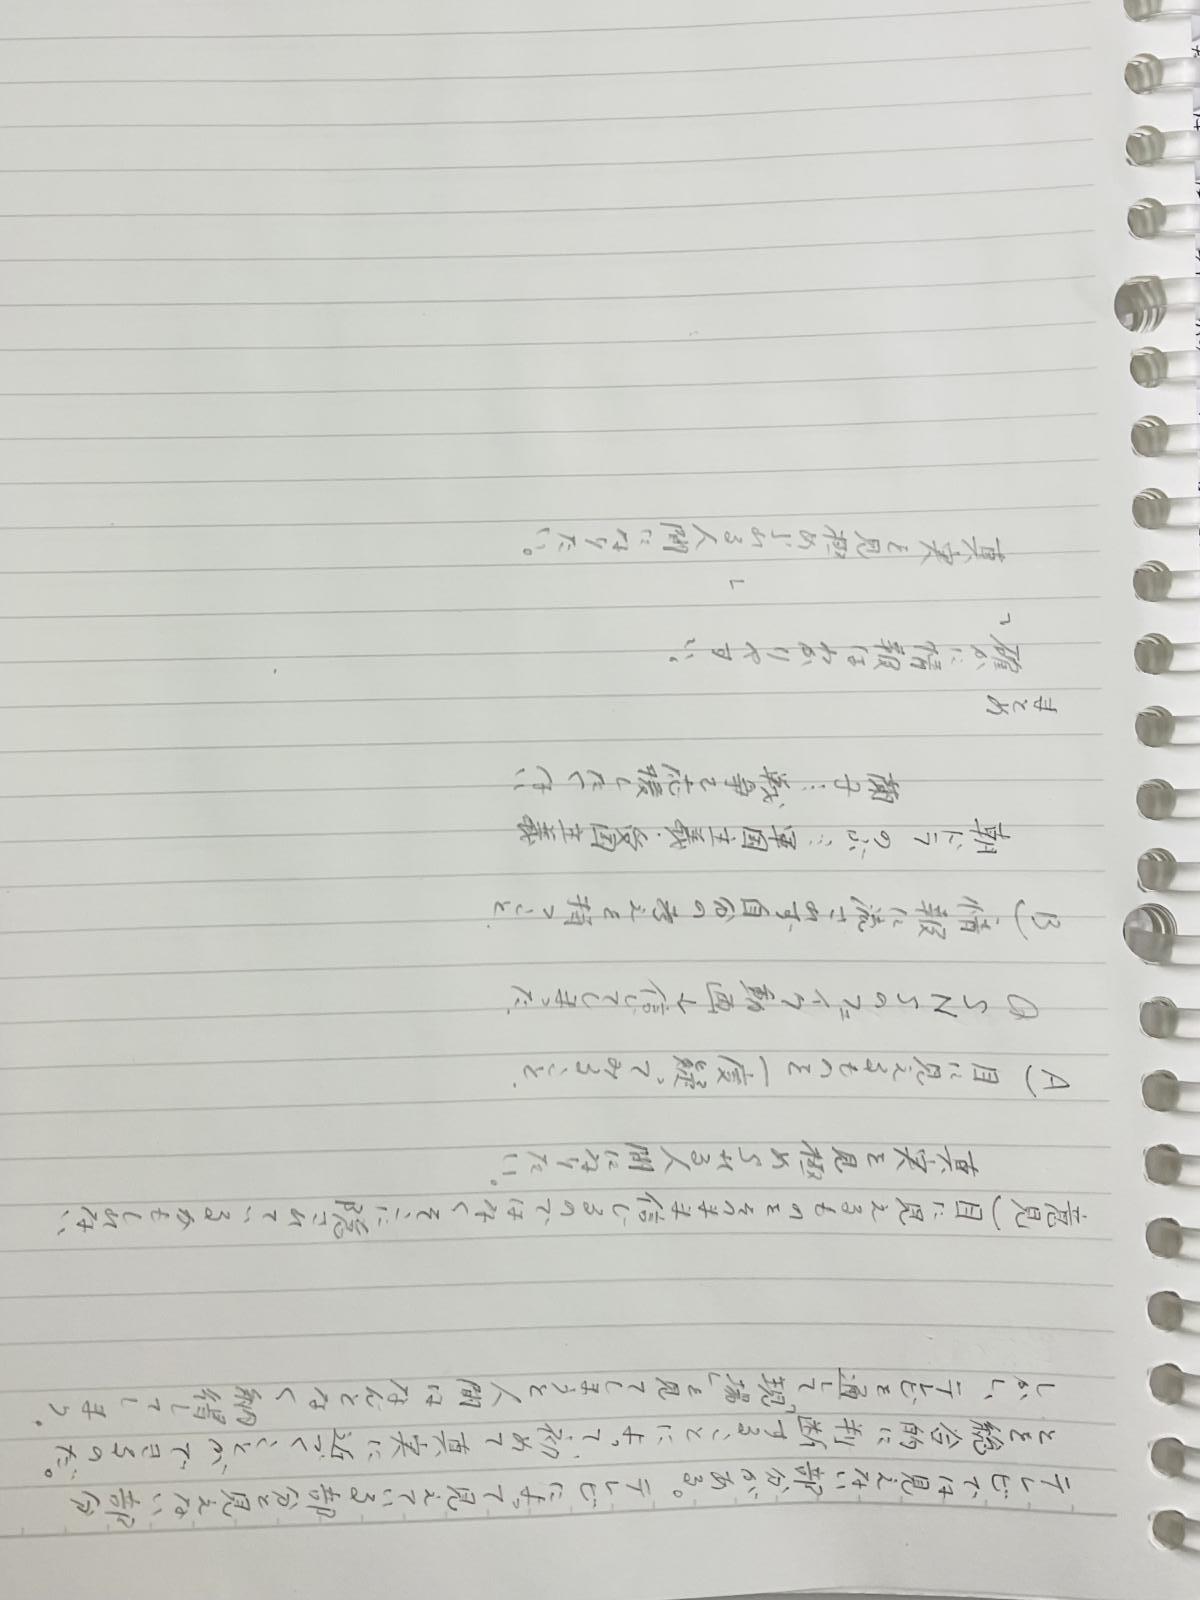 テレビでは見えない部分がある。テレビによって見えている部分と見えない部分
とを総合的に判断することによって初めて真実に近づくことができるのだ。
しかし、テレビを通して「現場」を見てしまうと人間はなんとなく納得してしまう。
意見）目に見えるものをそのまま信じるのではなくそこに隠されているかもしれない
真実を見極められる人間になりたい。
A）目に見えるものを一度疑ってみること。
a SNSのフェイク動画 信じてしまった
B）情報に流されず自分の考えを持つこと。
朝ドラ のぶ…軍国主義・愛国主義
蘭子…戦争を応援したくない
まとめ
「確かに情報はわかりやすい。
」
真実を見極められる人間になりたい。